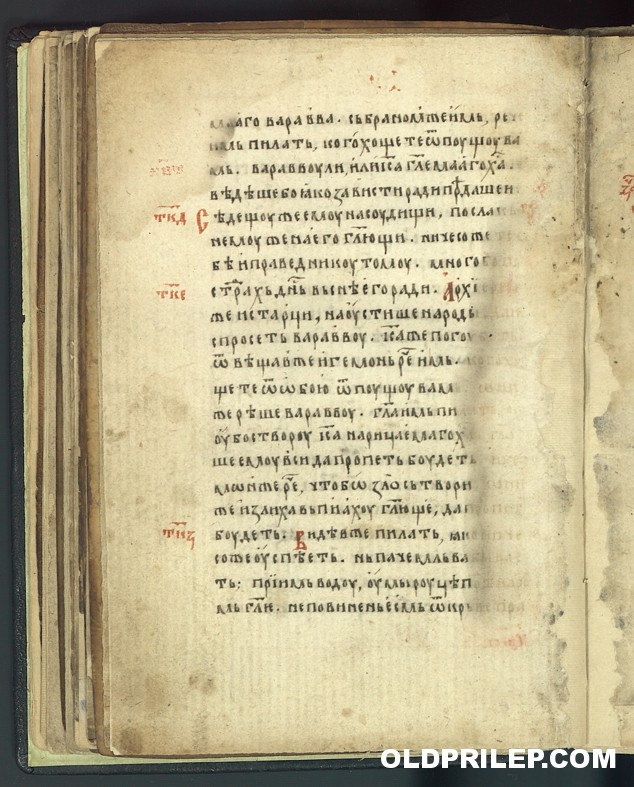 маго варавва. събраномже имь, ре
имь пилать, кого хощете ѿпоущоу ва
мь. вараввоу ли, или іс҃а гл҃емааго х҃а.
вѣдѣше бо ꙗко зависти ради прѣдаше и
тк҃д Сѣдещоуже емоу на соудищи, посла
к немоу жена его гл҃ющи. ничесоже
бѣ и праведникоу томоу. много
тк҃е страхь дн҃ь вь снѣ его ради. Архї
же и старци, наоустише народы
спросеть вараввоу. іс҃а же погоу
ѿвѣщавже игемонь реч҃ имь.
щете ѿ ѡбою ѿпоущоу вам
же рѣше вараввоу. гл҃а имь пи
оубо створоу іс҃а нарицаемаго х
ше емоу вси да пропеть боудеть
мѡнже реч҃, что бѡ зло сьтвори
же излиха вьпиахоу гл҃юще, да п
тк҃ꙃ боудеть. Видѣвже пилать, ꙗк
соже оуспѣеть. нь паче мль ва
ть: прїимь водоу, оумы роуцѣ п
мь гл҃е. неповинень есмь ѿ кр
OLDPRILEP.COM